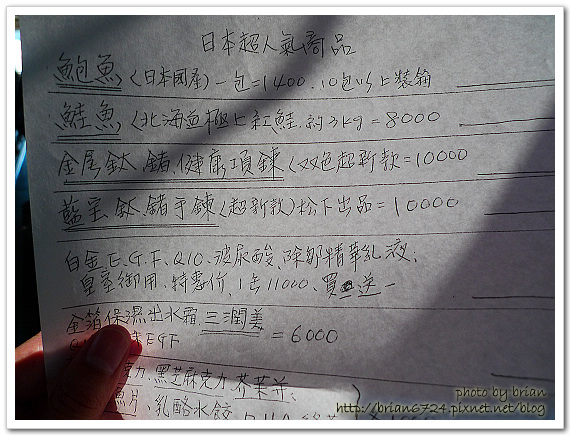 日本超人氣商品
鮑魚〈日本國產〉一包=1400.10包以上裝箱
鮭魚〈北海道極上紅鮭.約3kg=8000
金屬鈦.鍺.健康項鍊〈双色超新款=10000
藍宝鈦.鍺手鍊〈超新款〉松下出品=10000
白金E.G.F.Q10.玻尿酸、除皺精華乳液、
皇室御用.特惠价.1缶11000、買一送一
金箔保濕出水霜.三潤美
EGF =6000
克力、黑芝麻克力.芥茉井、
魚片、乳酪水餃
photo by brian
http://brian6724.pixnet.net/blog